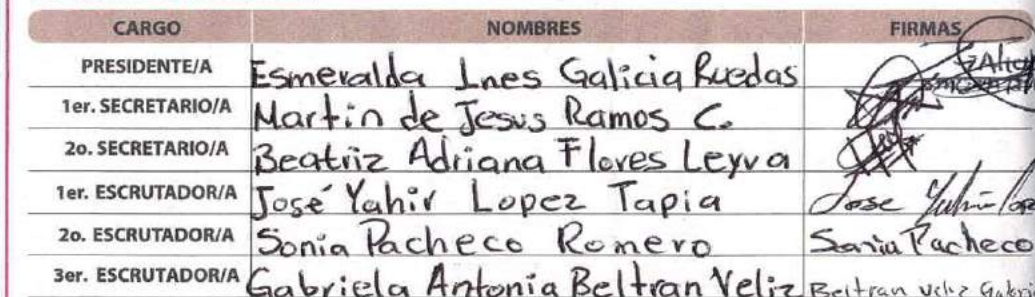 CARGO NOMBRES FIRMAS
PRESIDENTE/A Esmeralda Ines Galicia Ruedas
1er. SECRETARIO/A Martin de Jesus Ramos C.
2o. SECRETARIO/A Beatriz Adriana Flores Leyva
1er. ESCRUTADOR/A José Yahir Lopez Tapia Jose Yahir
2o. ESCRUTADOR/A Sonia Pacheco Romero Sonia Pacheco
3er. ESCRUTADOR/A Gabriela Antonia Beltran Veliz Beltran Veliz